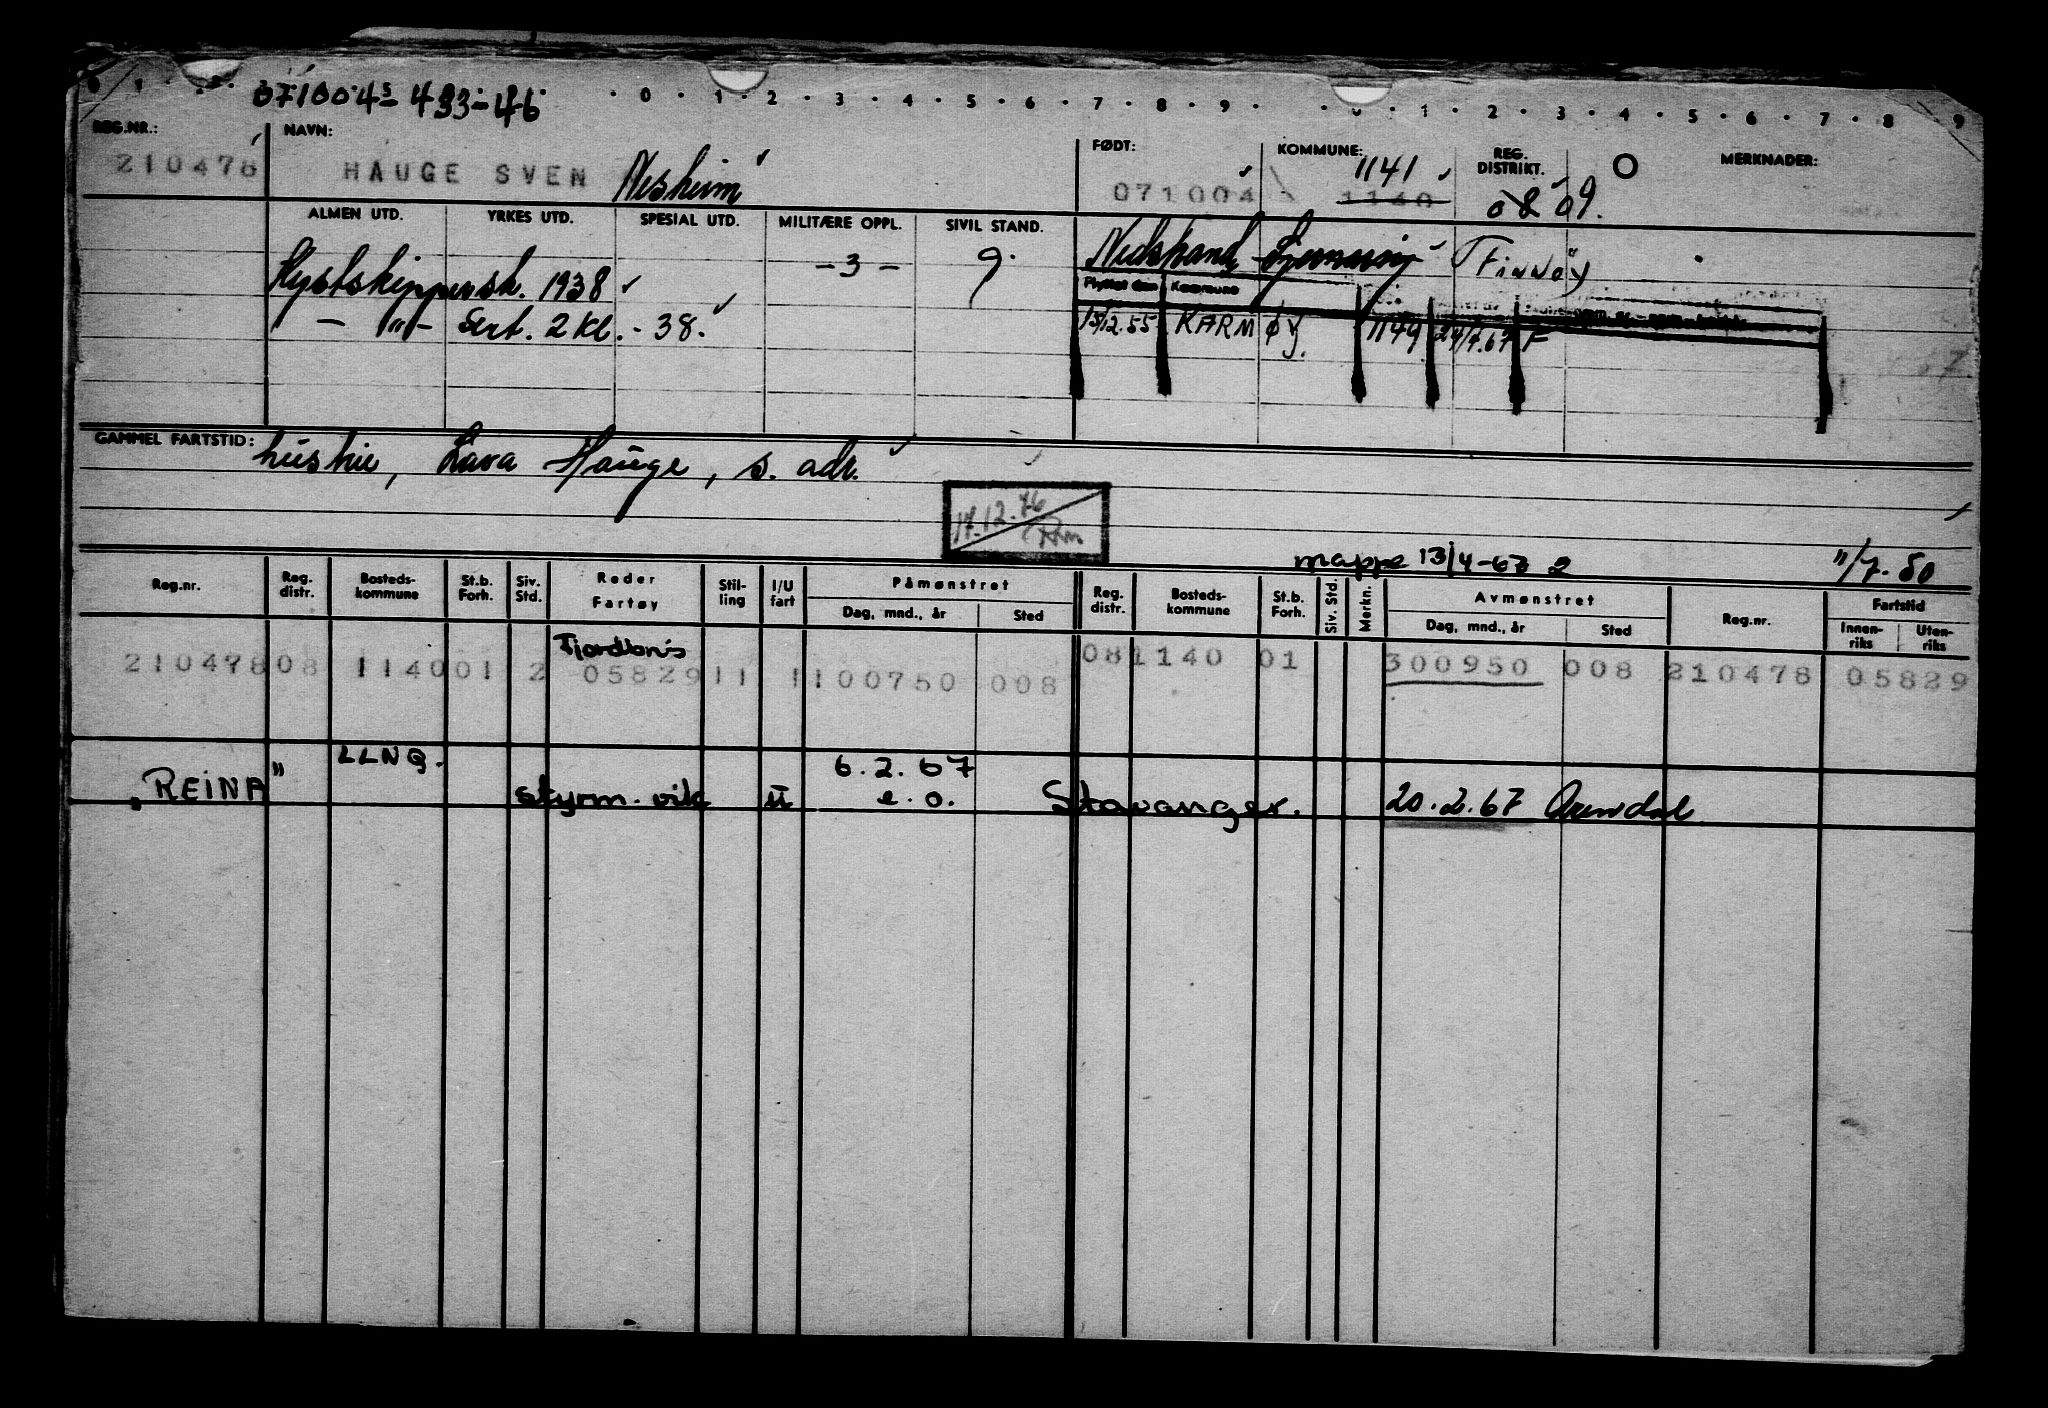 0 1 2 0 1 2 3 4 5 6 7 8 9 0 1 2 3 4 5 6 7 8 9
071004 - 433-46
REG.NR.: NAVN: FØDT: KOMMUNE: REG. DISTRIKT. MERKNADER:
1141
210478 HAUGE SVEN 071004 1140 08 09.
ALMEN UTD. YRKES UTD. SPESIAL UTD. MILITÆRE OPPL. SIVIL STAND.
Kystskippersk. 1938 - 3 - g. Nedstrand (Finnøy)
Flyttet den Kommune
— " — Sert. 2 kl. - 38. 15/12.55 KARMØY. 1149 24/4.67 F
GAMMEL FARTSTID: hustru, Lava Hauge, s. adr.
17.12.76
mappe 13/4-67 2 11/7.50
Reg.nr. Reg. distr. Bosteds-kommune St.b. Forh. Siv. Std. Reder Fartøy Stil-ling I/U fart Påmønstret Reg. distr. Bosteds-kommune St.b. Forh. Siv. Std. Merkn. Avmønstret Reg.nr. Fartstid
Dag, mnd., år Sted Dag, mnd., år Sted Innen-riks Uten-riks
210478 08 1140 01 2 05829 11 1 100750 008 08 1140 01 300950 008 210478 05829
LLNQ. 6.2.67
"REINA" styrm. vik u e.o. Stavanger. 20.2.67 Arendal